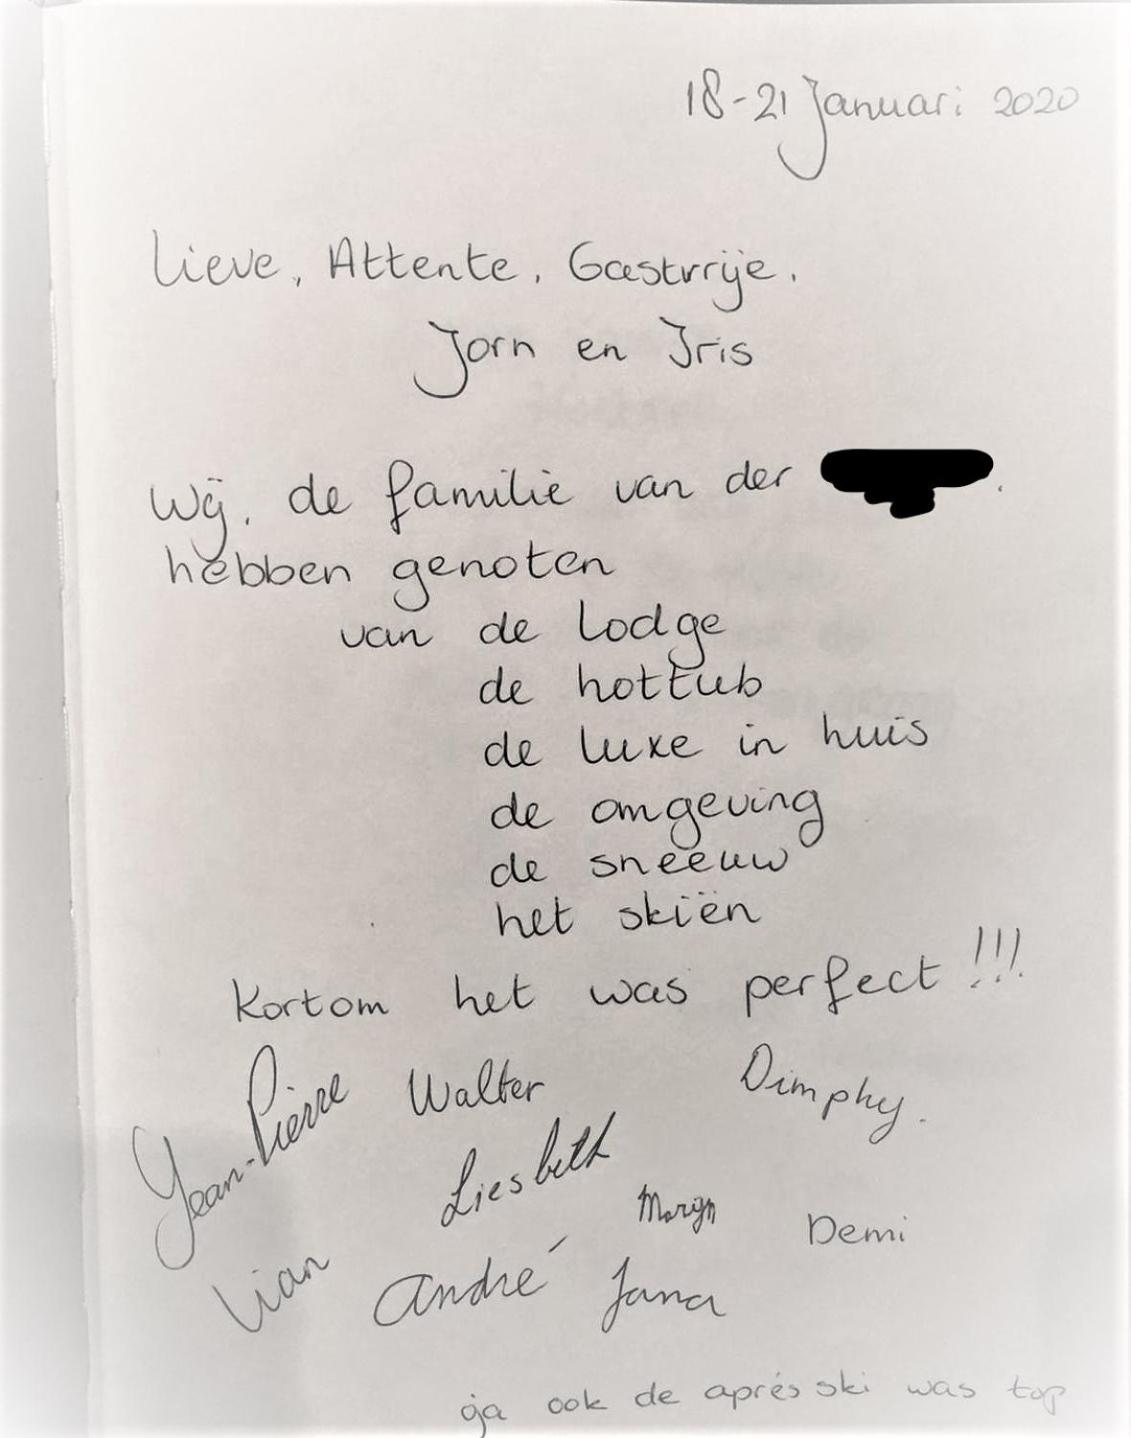 18-21 Januari 2020
Lieve, Attente, Gastvrije,
Jorn en Iris
Wij, de familie van der
hebben genoten
van de Lodge
de hottub
de luxe in huis
de omgeving
de sneeuw
het skiën
Kortom het was perfect !!!
Jean-Pierre Walter Dimphy.
Liesbeth
Marijn Demi
Lian André Jana
ja ook de aprés ski was top